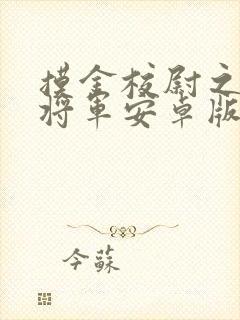 摸金校尉之
将军安卓版
今蘇